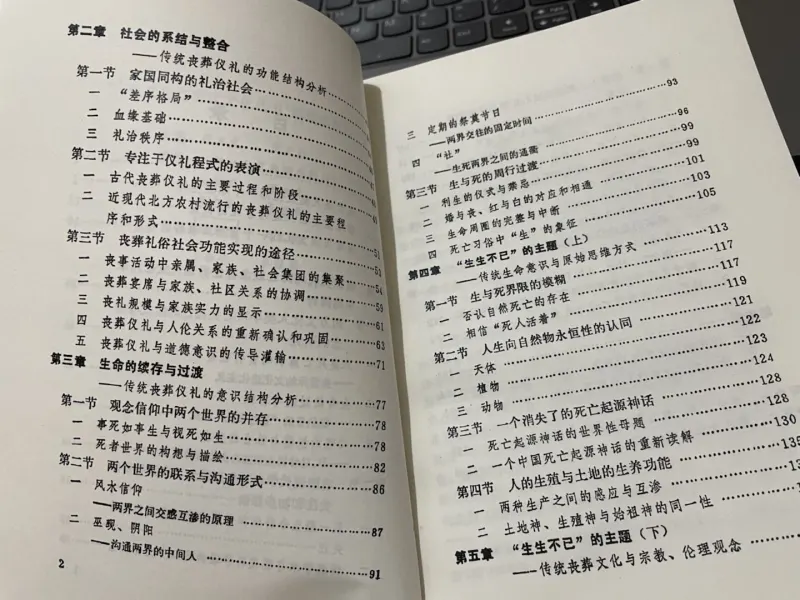 第二章 社会的系结与整合
——传统丧葬仪礼的功能结构分析
第一节 家国同构的礼治社会
一 “差序格局”
二 血缘基础
三 礼治秩序
第二节 专注于仪礼程式的表演
一 古代丧葬仪礼的主要过程和阶段
二 近现代北方农村流行的丧葬仪礼的主要程
序和形式 51
第三节 丧葬礼俗社会功能实现的途径 53
一 丧事活动中亲属、家族、社会集团的集聚 54
二 丧葬宴席与家族、社区关系的协调 59
三 丧礼规模与家族实力的显示 61
四 丧葬仪礼与人伦关系的重新确认和巩固 63
五 丧葬仪礼与道德意识的传导灌输 71
第三章 生命的续存与过渡
——传统丧葬仪礼的意识结构分析 77
第一节 观念信仰中两个世界的并存 78
一 事死如事生与视死如生 78
二 死者世界的构想与描绘 82
第二节 两个世界的联系与沟通形式 86
一 风水信仰
——两界之间交感互渗的原理 87
二 巫觋、阴阳
——沟通两界的中间人 91
2
三 定期的祭奠节日 93
——两界交往的固定时间
四 “社” 96
——生死两界之间的通衢 99
第三节 生与死的周行过渡 99
一 利生的仪式与禁忌 101
二 婚与丧、红与白的对应和相通 103
三 生命周圈的完整与中断 105
四 死亡习俗中“生”的象征
第四章 “生生不已”的主题（上） 113
——传统生命意识与原始思维方式 117
第一节 生与死界限的模糊 117
一 否认自然死亡的存在 119
二 相信“死人活着” 121
第二节 人生向自然物永恒性的认同 122
一 天体 123
二 植物 124
三 动物 128
第三节 一个消失了的死亡起源神话 128
一 死亡起源神话的世界性母题 130
二 一个中国死亡起源神话的重新读解
第四节 人的生殖与土地的生养功能
一 两种生产之间的感应与互渗
二 土地神、生殖神与始祖神的同一性
第五章 “生生不已”的主题（下）
——传统丧葬文化与宗教、伦理观念